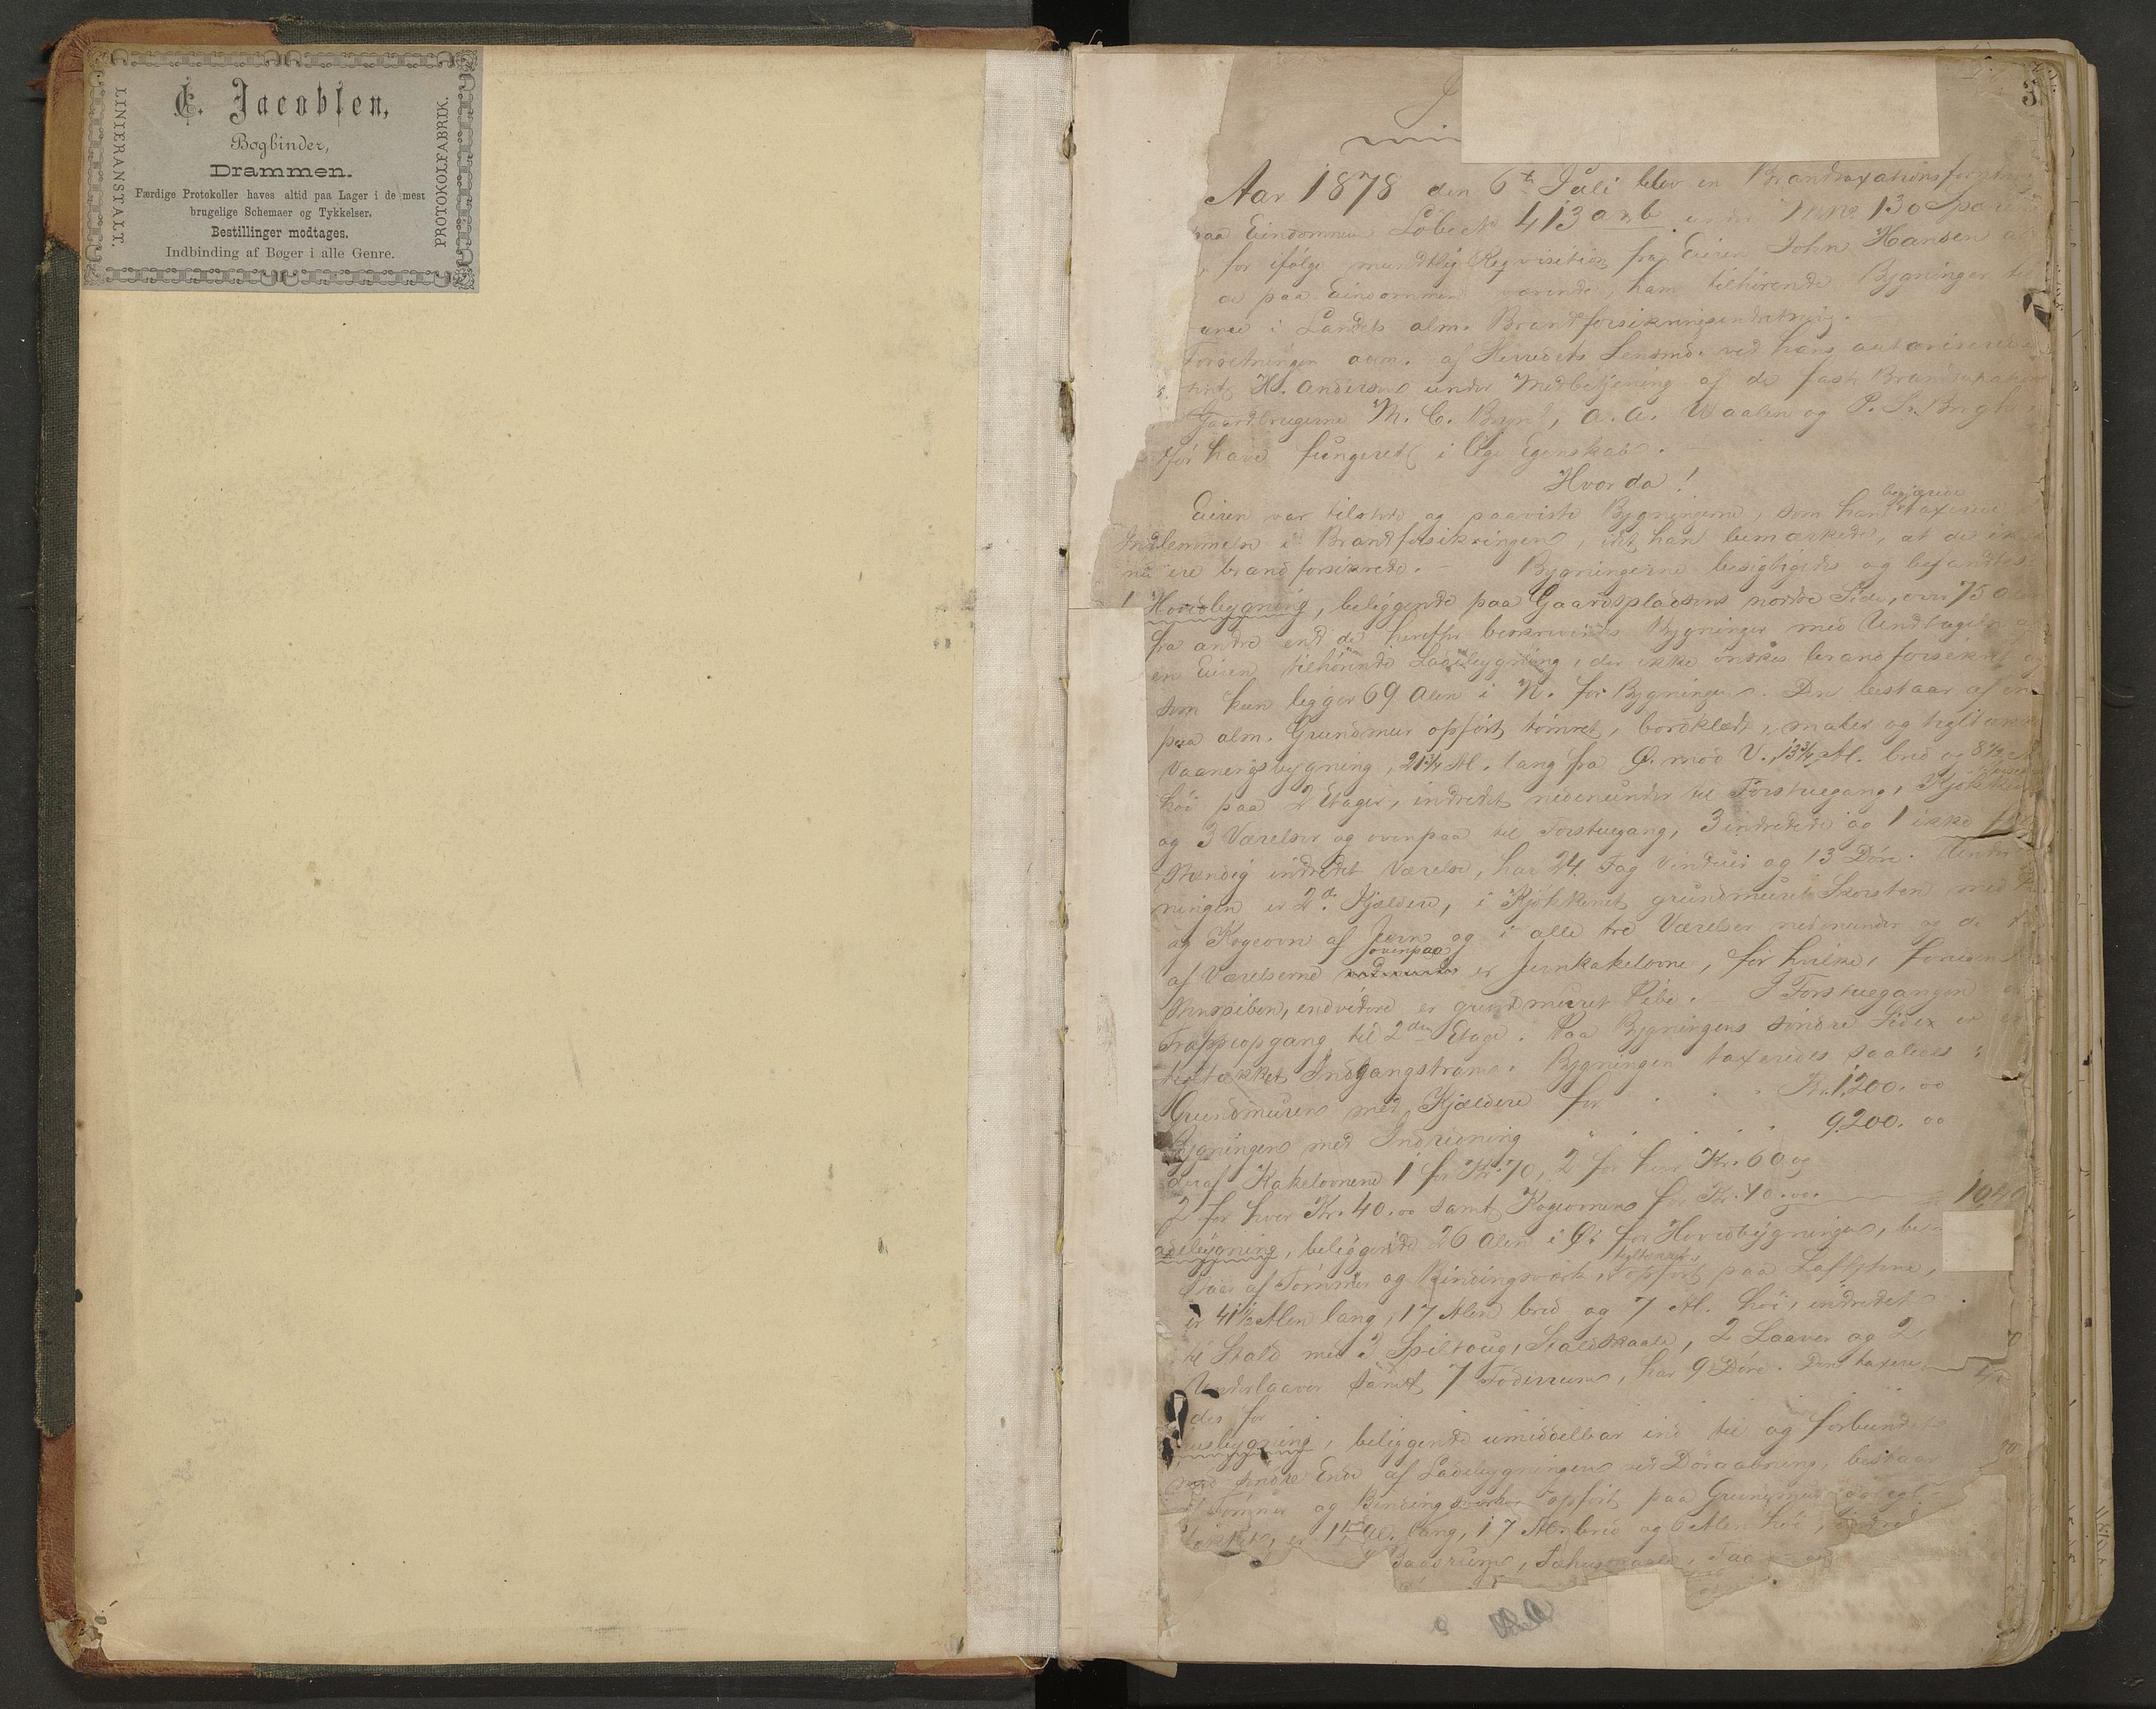 C. Jacobsen,
Bogbinder,
Drammen.
Færdige Protokoller haves altid paa Lager i de mest
brugelige Schemaer og Tykkelser.
Bestillinger modtages.
Indbinding af Bøger i alle Genre.
LINIERANSTALT.
PROTOKOLFABRIK.
3
Aar 1878 den 6te Juli blev en Brandtaxationsforretning
paa Eiendommen Løbe No 413 a & b
for ifølge mundtlig Reqvisition fra Eieren John Hansen at
de paa Eiendommen værende, ham tilhørende Bygninger til
i Landets alm. Brandforsikringsindretning.
Forretningen adm. af Herredets Lensmd. ved hans autoriserede
H. Andersen under Medbetjening af de faste Brandskjøns
Gaardbrugerne M. C. Bryn, A. A. Waalen og P. S.
før have fungeret i lige Egenskab.
Hvorda!
Eieren var tilstede og paaviste Bygningerne, som han begjærede taxerede
Indlemmelse i Brandforsikringen, idet han bemærkede, at de ikke
nu ere brandforsikrede. - Bygningerne besigtigedes og befandtes:
1 Hovedbygning, beliggende paa Gaardspladsens nordre Side, over 75 Alen
fra andre end de herefter beskrevende Bygninger med Undtagelse af
en Eieren tilhørende Ladebygning, der ikke ønskes brandforsikret og
som kun ligger 69 Alen i N. for Bygningen. Den bestaar af en
paa alm. Grundmur opført tømret, bordklædt, malet og tegltækket
Vaaningsbygning, 21¾ Al. lang fra Ø. mod V., 13¾ Al. bred og 8½ Al.
høi paa 2 Etager, indredet nedenunder til Forstuegang, Kjøkken
og 3 Værelser og ovenpaa til Forstuegang, 3 indredede og 1 ikke
stændig indredet Værelse, har 24 Fag Vinduer og 13 Døre. Under
ningen er 2de Kjeldere, i Kjøkkenet grundmuret Skorsten med
og Kogeovn af Jern og i alle tre Værelser nedenunder og de
af Værelserne ovenpaa er Jernkakelovne, for hvilke, foruden
Skorspiben, endvidere er grundmuret Pibe. I Forstuegangen er
Trappeopgang til 2den Etage. Paa Bygningens søndre Side er en
tegltækket Indgangstram. Bygningen taxeredes saaledes:
Grundmuren med Kjeldere for . . . Kr. 1,200. 00
Bygningen med Indredning " . . . . 9,200. 00
deraf Kakelovnene 1 for Kr. 70, 2 for hver Kr. 60 og
2 for hver Kr. 40.00 samt Kogeovnen for Kr. 40.00.
Ladebygning, beliggende 26 Alen i Ø. for Hovedbygningen, be
staar af Tømmer og Bindingsværk, tegltækket, opført paa Løfstene,
er 41½ Alen lang, 17 Alen bred og 7 Al. høi, indredet
til Stald med 3 Spiltoug, Staldskaale, 2 Laaver og 2
Underlaaver samt 7 Foderrum, har 9 Døre. Den taxere
des for
usbygning, beliggende umiddelbar ind til og forbundet
med søndre Ende af Ladebygningen ved Døraabning, bestaar
af Tømmer og Bindingsværk opført paa Grundmur
tækket, er Al. lang, 17 Al. bred og 6 Alen høi,
Baasrum, Fæhusskaale,